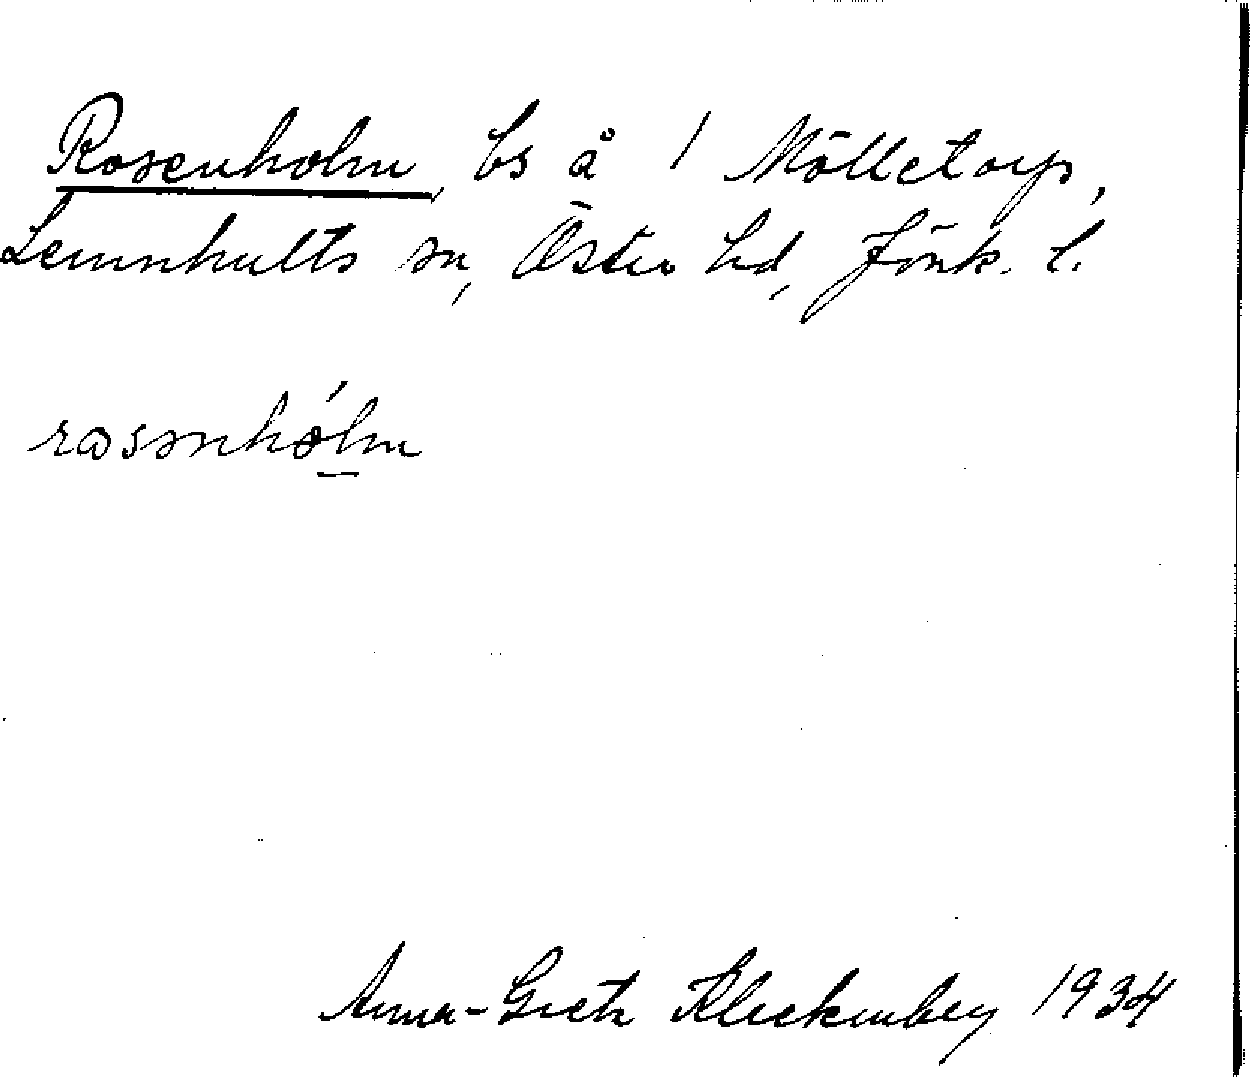 Rosenholm, bs å 1 Mölletorp,
Lemnhults sn, Östra hd, Jönk. l.
rosənhólm
Anna-Greta Kleckenberg 1934